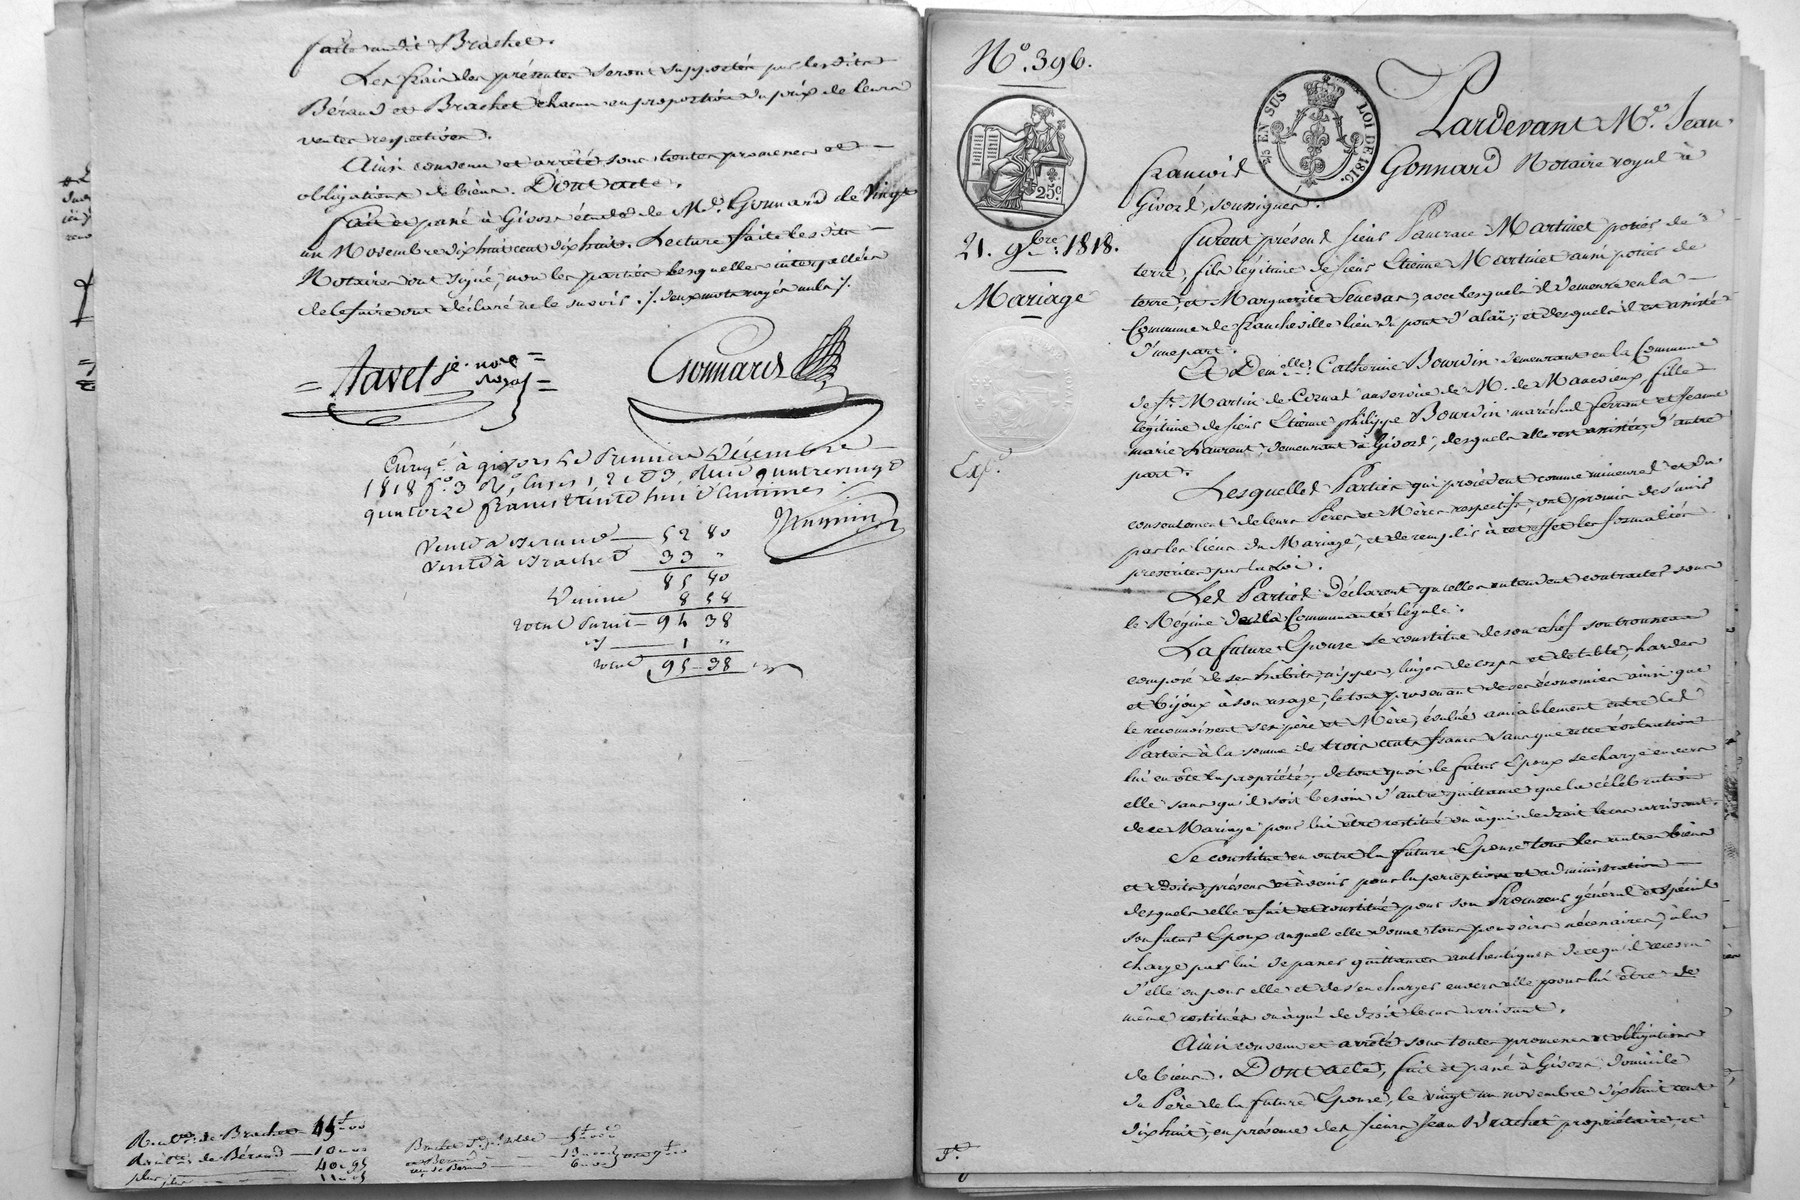 faite audit Brachet.
Les frais des présentes seront supportés par lesdits
Béraud et Brachet chacun en proportion du prix de leurs
ventes respectives.
Ainsi convenu et arrêté sous toutes promesses et
obligations de biens. Dont acte.
fait et passé à Givors étude de Me. Gonnard le vingt
un Novembre dix huit cent dix huit. Lecture faite lesdits
Notaires ont signé, non les parties lesquelles interpellées
de le faire ont déclaré ne le savoir ./. deux mots rayés nuls ./.
= Favel je. not.e =
= royal =
Gonnard
Enreg.é à givors le premier Décembre
1818 f.o 3 R.o, cases 1, 2 et 3, Reçu quatrevingt
quatorze francs trente huit Centimes
Vente à Béraud — 52 80
Vente à Brachet 33 "
85 80
Dixième 8 58
Total Pareil — 94 38
1 "
Total 95 — 38
de Brachet — 45 f 00
de Béraud — 10 00
40 95
N.o 396.
2/5 EN SUS
LOI DE 1816.
25 c
21. 9bre. 1818.
Mariage
Exp.é
Pardevant Me. Jean
François Gonnard Notaire royal à
Givors, soussigné.
furent présens sieur Pancrace Martinet potier de
terre, fils légitime de sieur Etienne Martinet aussi potier de
terre, et Marguerite Senevas, avec lesquels il demeure en la
Commune de francheville lieu de pont d'alaï; et desquels il est assisté
d'une part.
Et Demelle. Catherine Bourdin demeurant en la Commune
de St. Martin de Cornas au service de M. de Maucsieux, fille
légitime de sieur Etienne philippe Bourdin maréchal ferrant et Jeanne
marie Laurent demeurant à Givors, desquels elle est assistée, d'autre
part.
Lesquelles Parties qui procèdent comme mineures et du
consentement de leurs Pères et Mères respectifs, ont promis de s'unir
par les liens du Mariage, et de remplir à cet effet les formalités
prescrites par la Loi.
Les Parties déclarent qu'elles entendent contracter sous
le Régime de la Communauté légale.
La future Epouse se constitue de son chef son trousseau
composé de ses habits, nippes, linges de corps et de table, hardes
et bijoux à son usage, le tout provenant de ses économies ainsi que
le reconnoissent ses père et Mère, évalué amiablement entre les
Parties à la somme de trois cents francs sans que cette évaluation
lui en ôte la propriété, de tout quoi le futur Epoux se charge envers
elle sans qu'il soit besoin d'autre quittance que la célébration
de ce Mariage pour lui être restitué ou à qui de droit le cas arrivant.
Se constitue en outre la future Epouse tous les autres biens
et droits présens et à venir pour la perception et administration
desquels elle a fait et constitué pour son Procureur général et spécial
son futur Epoux auquel elle donne tous pouvoirs nécessaires, à la
charge par lui de passer quittances authentiques de ce qu'il recevra
d'elle ou pour elle et de s'en charger envers elle pour lui être de
même restitués ou à qui de droit le cas arrivant.
Ainsi convenu et arrêté sous toutes promesses et obligations
de biens. Dont acte, fait et passé à Givors, domicile
du Père de la future Epouse, le vingt un novembre dix huit cent
dix huit, en présence des sieurs Jean Brachet propriétaire, et